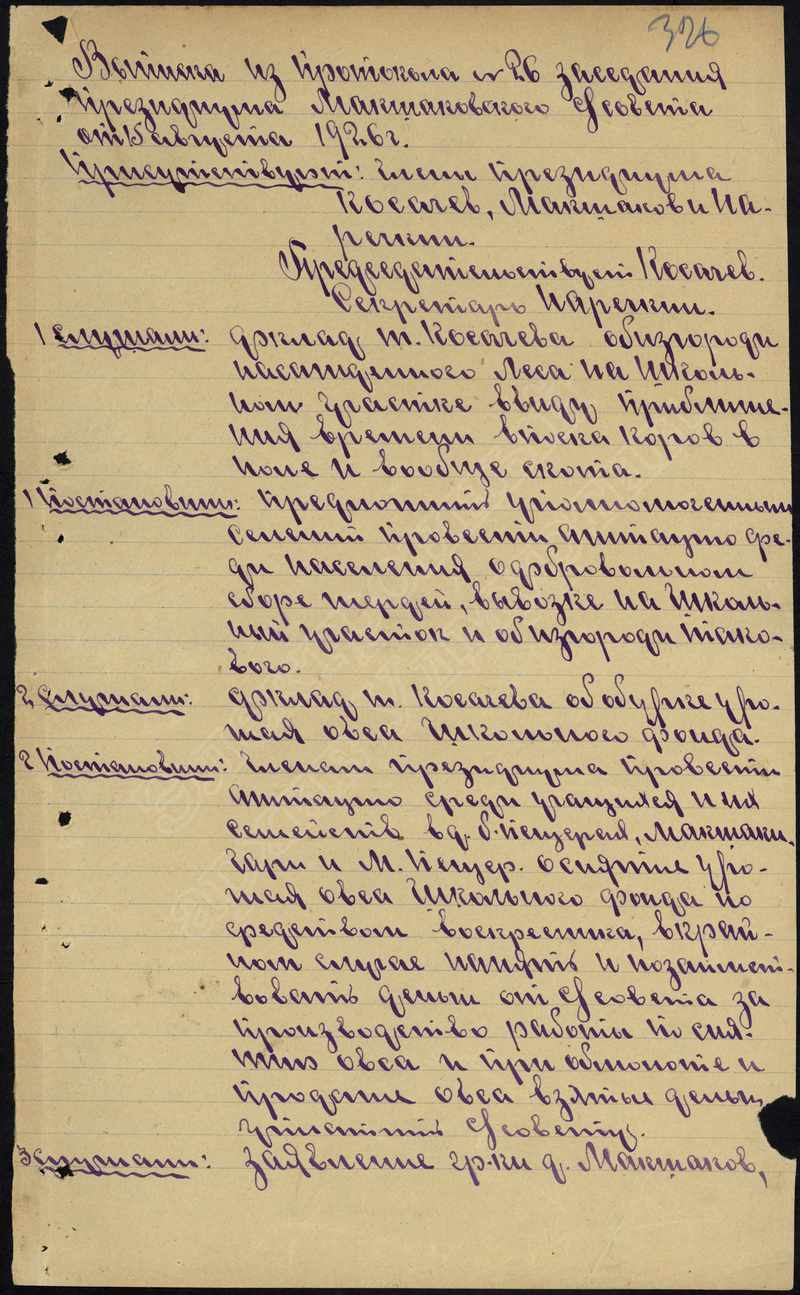 326
Выписка из протокола № 26 заседания
Президиума Макшаковского Совета
от 15 августа 1926 г.
Присутствуют: Члены Президиума
Косачев, Макшаков и На-
речкин.
Председательствует Косачев.
Секретарь Наречкин.
1 Слушали: доклад т. Косачева об изгороди
насажденного леса на Школь-
ном участке ввиду приближе-
ния времени впоска коров в
поле и вообще скота.
1 Постановили: Предложить уполномоченным
селений провести агитацию сре-
ди населения о добровольном
сборе жердей, вывозке на Школь-
ный участок и об изгороди тако-
вого.
2 Слушали: доклад т. Косачева об уборке уро-
жая овса Школьного фонда.
2 Постановили: Членам Президиума провести
агитацию среди учащихся и их
семейств в д. Б. Пещерах, Макшаки,
и М. Пещер. о снятие уро-
жая овса Школьного фонда по
средством воскресника, в край-
ном случае нанять и позаимст-
вовать деньги от Совета за
производство работы по сня-
тию овса и при обмолоте и
продаже овса взятые деньги
уплатить Совету.
3 Слушали: Заявление гр-ки д. Макшаков,